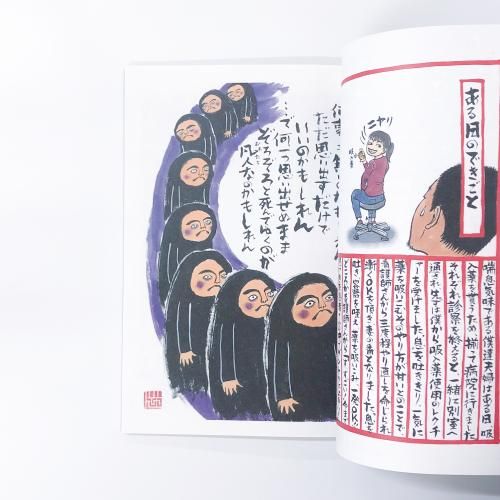 ある日のできごと
ニヤリ
喘息気味である僕達夫婦はある日、吸
入薬を貰うため揃って病院に行きました
それぞれ診察を終えると、一緒に別室へ
通され先ずは僕から吸入薬使用のレクチ
ャーを受けました。息を吐ききり、一気に
薬を吸いこむそのやり方が甘いとのことで
看護師さんから三度程やり直しを命じられ
漸くOKを頂き妻の番となりました。息を
吐き 器を咥え 薬を吸いこみ 一発OK
ただ思い出すだけで
いいのかもしれん
…で何一つ思い出せぬまま
ぞろぞろと死んでゆくのが
凡人なのかもしれん